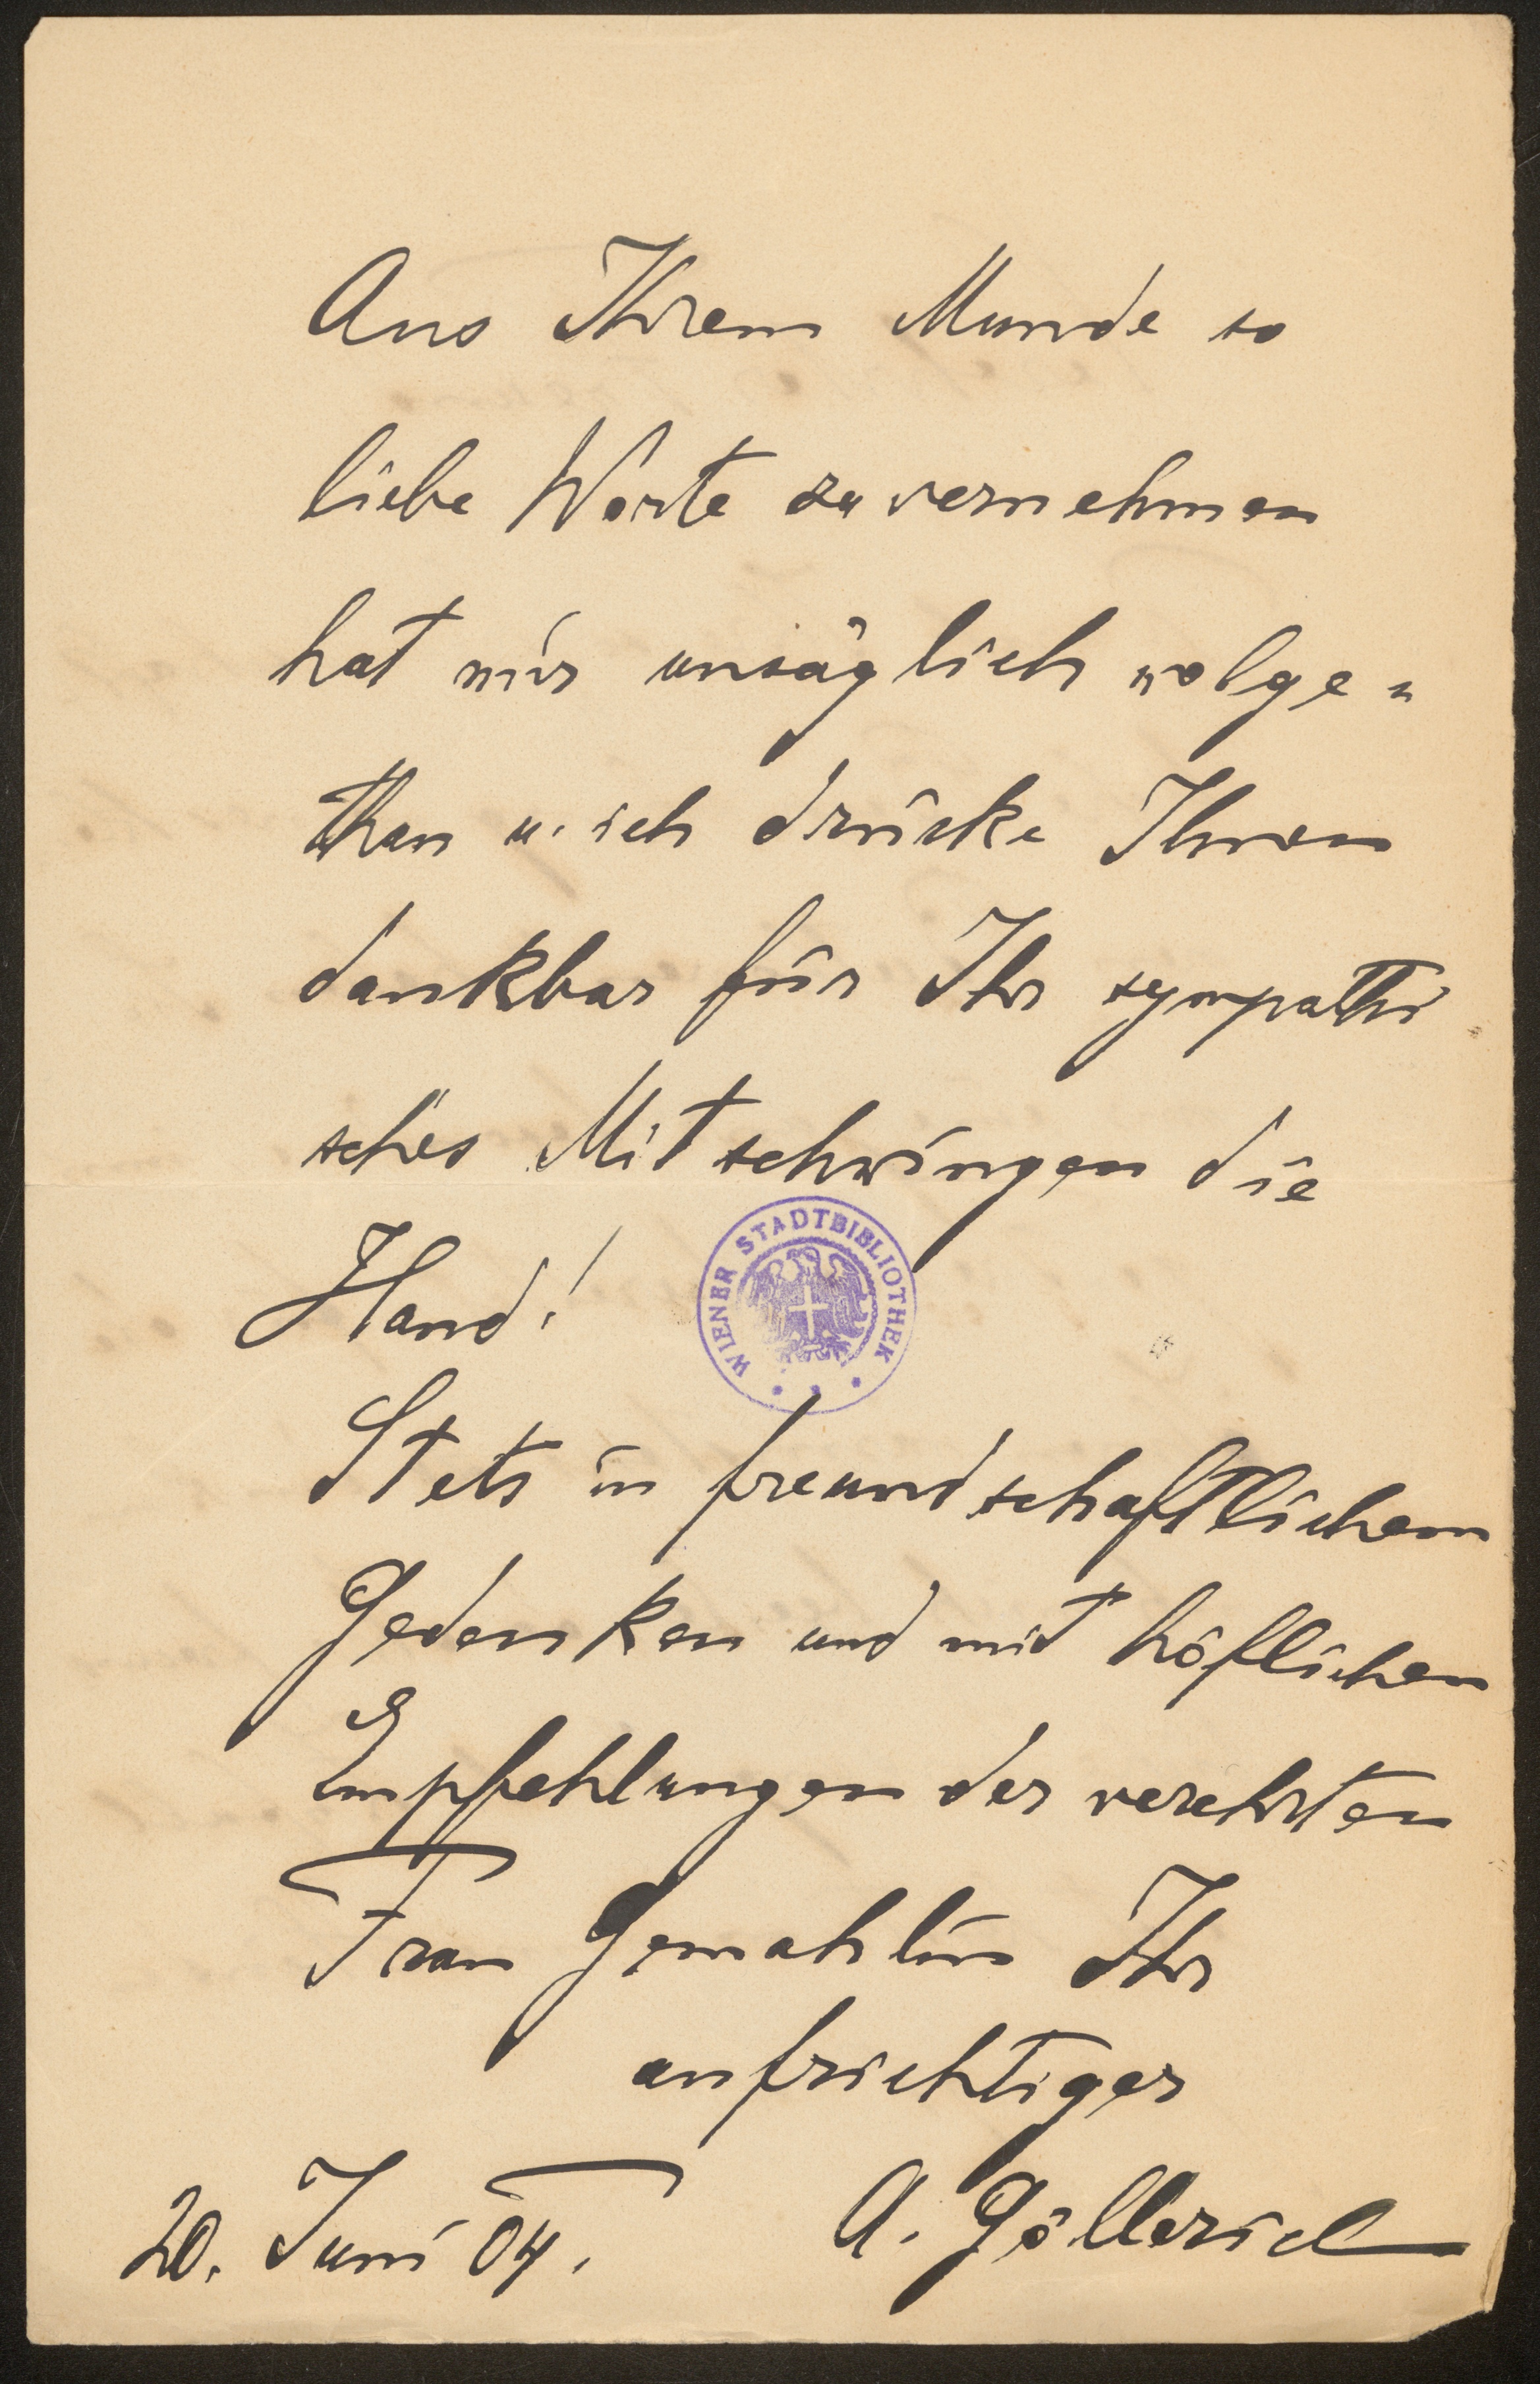 Aus Ihrem Munde so
liebe Worte zu vernehmen
hat mir unsäglich wolge-
than u. ich drücke Ihnen
dankbar für Ihr sympathi
sches Mitschwingen die
Hand!
WIENER STADTBIBLIOTHEK
Stets in freundschaftlichem
Gedenken und mit höflichen
Empfehlungen der verehrten
Frau Gemahlin Ihr
aufrichtiger
A. Göllerich
20. Juni 04.